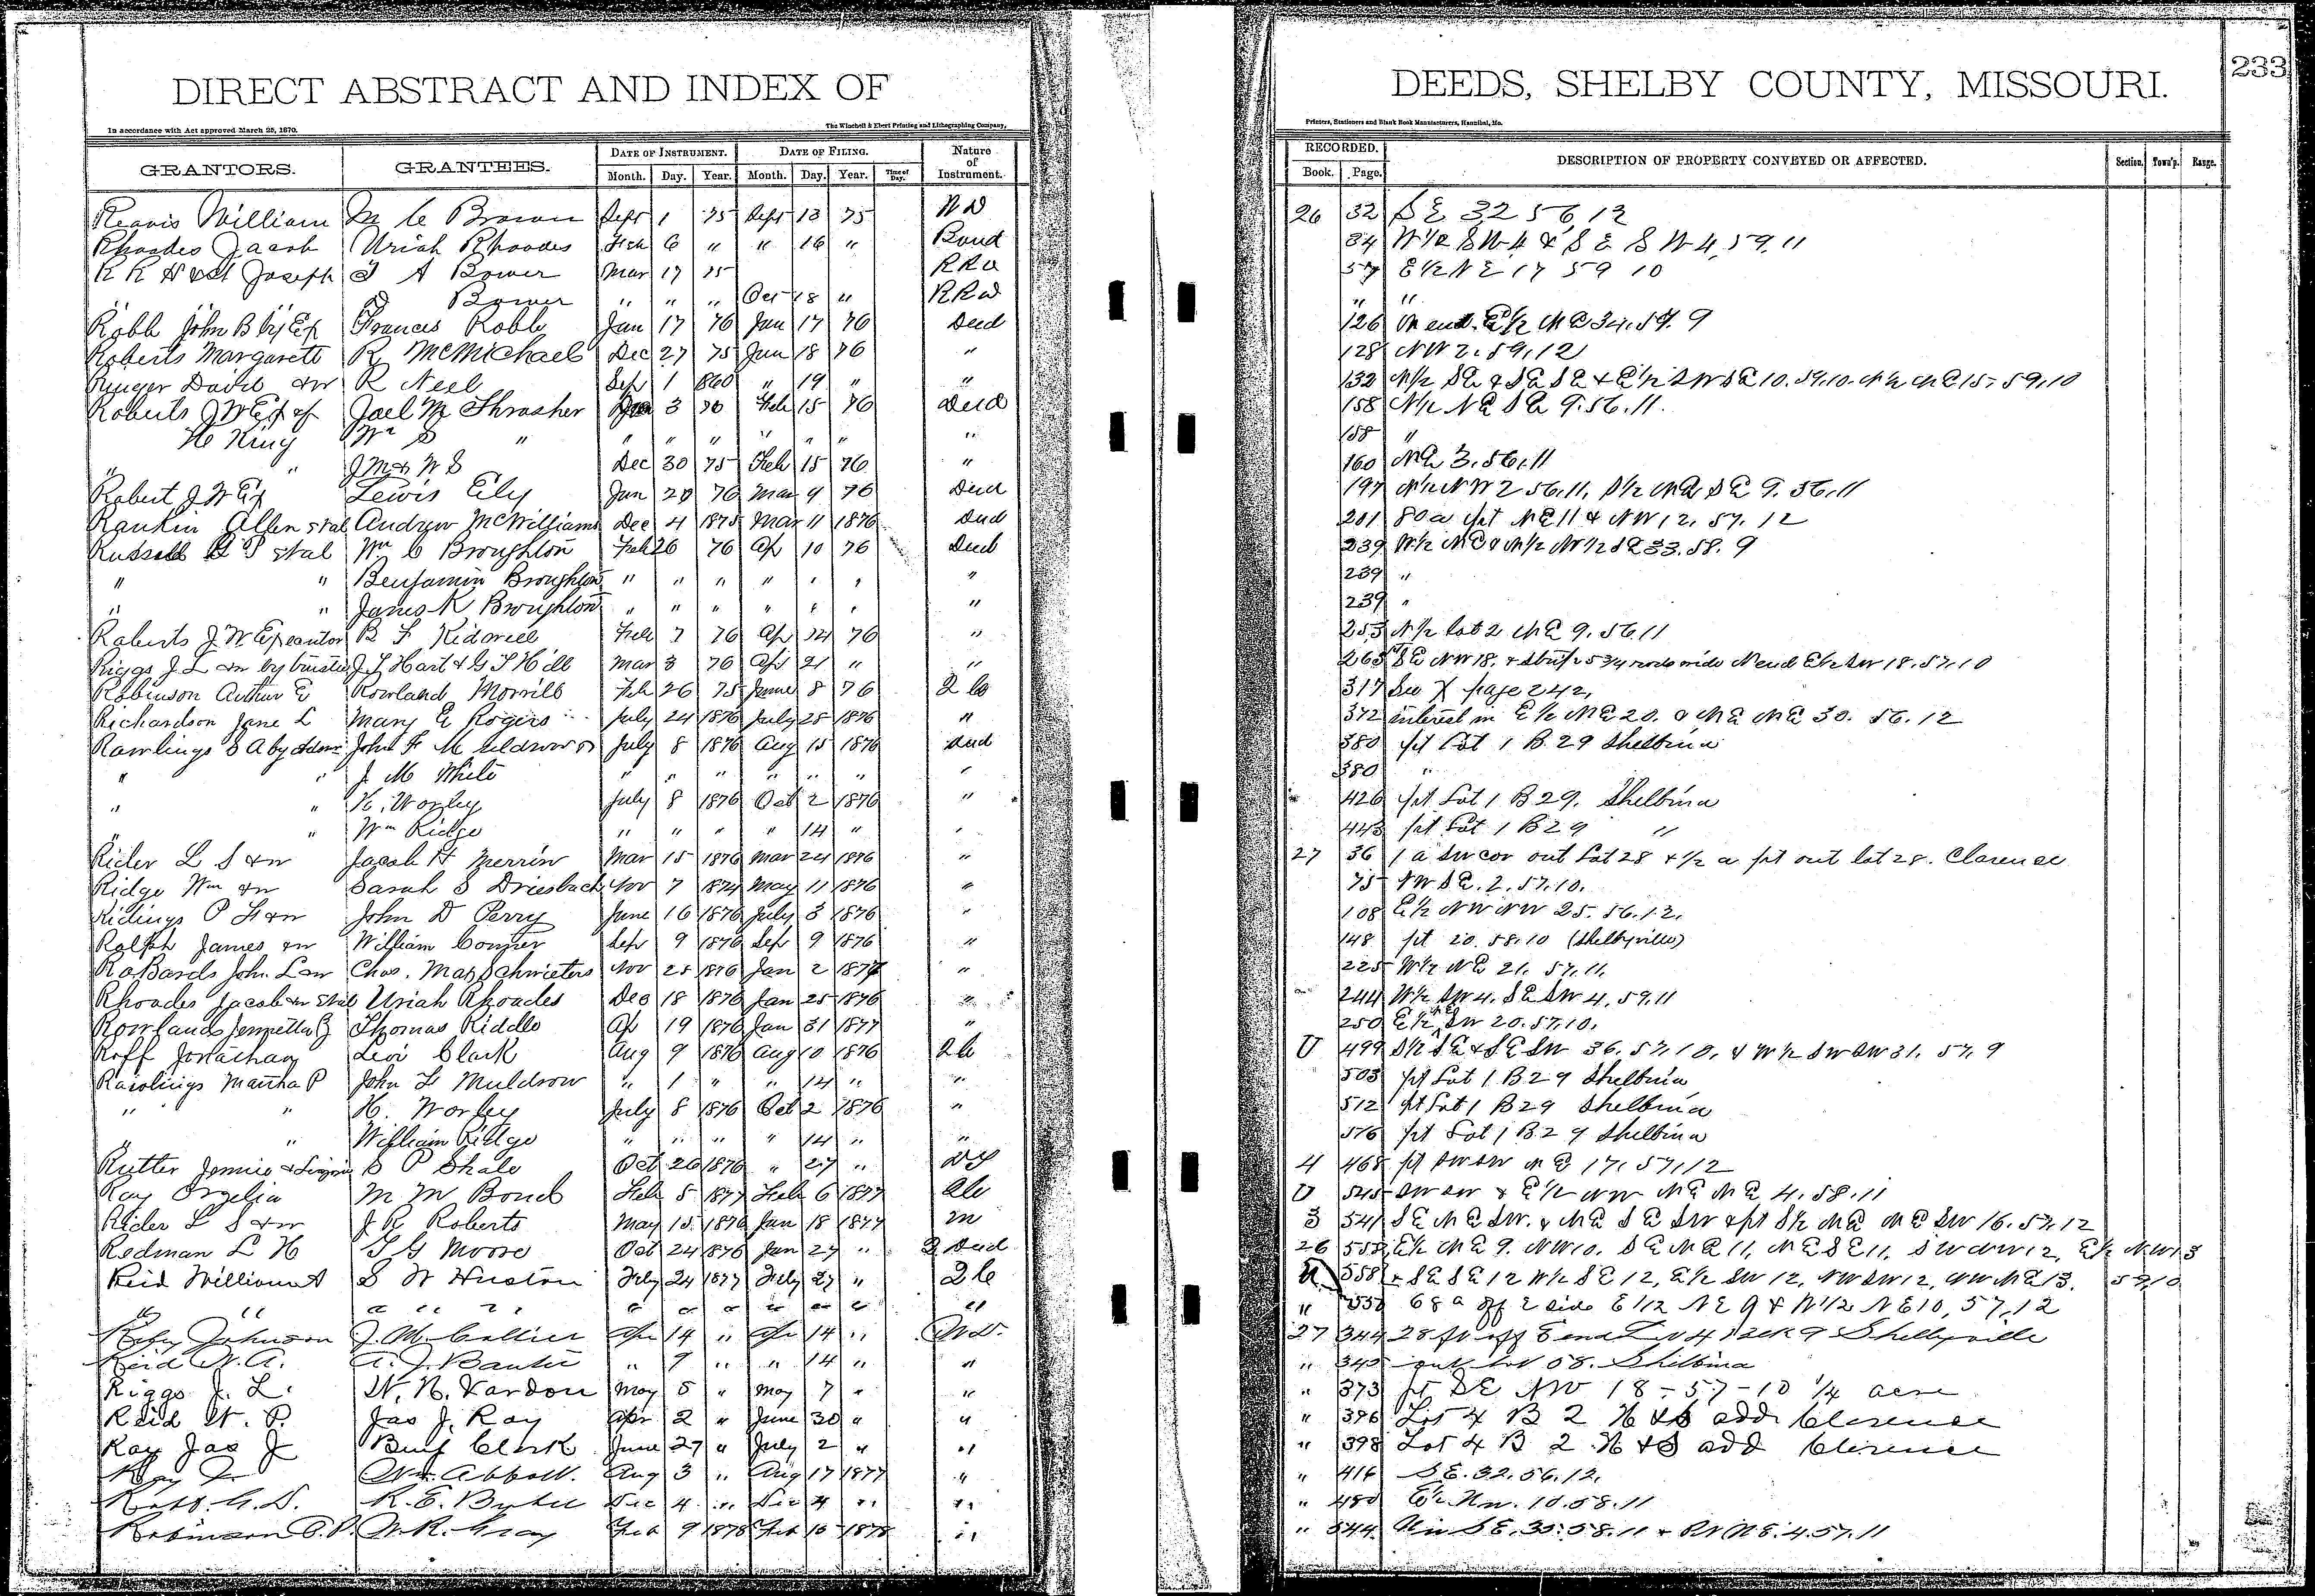 DIRECT ABSTRACT AND INDEX OF
In accordance with Act approved March 25, 1870.
The Winchell & Ebert Printing and Lithographing Company,
GRANTORS. GRANTEES. DATE OF INSTRUMENT. DATE OF FILING. Nature of Instrument.
Month. Day. Year. Month. Day. Year. Time of Day.
Reavis William M C Brown Sept 1 75 Sept 13 75 WD
Rhoades Jacob Uriah Rhoades Feb 6 " " 16 " Bond
R R H & St Joseph T A Bower Mar 17 75 RRD
" " Bower " " " Oct 18 " RRD
Robb John B by Ex Frances Robb Jan 17 76 Jan 17 76 Deed
Roberts Margarett R McMichael Dec 27 75 Jan 18 76 "
Ringer David &w R Neel Sep 1 1860 " 19 " "
Roberts J W Ex of Joel M Thrasher 3 76 Feb 15 76 Deed
H King Wm S " " " " " " " "
" " J M & W S Dec 30 75 Feb 15 76 "
Robert J W Ex Lewis Ely Jan 29 76 Mar 9 76 Deed
Rankin Allen et al Andrew McWilliams Dec 4 1875 Mar 11 1876 Deed
Russell G P et al Wm C Broughton Feb 26 76 Ap 10 76 Deed
" " Benjamin Broughton " " " " " " "
" " James K Broughton " " " " " " "
Roberts J W Executor B F Kidwell Feb 7 76 Ap 14 76 "
Riggs J L &w by trustee J T Hart & G T Hill Mar 3 76 Ap 21 " "
Robinson Arthur E Rowland Morrill Feb 26 75 June 8 76 2 C
Richardson Jane L Mary E Rogers July 24 1876 July 25 1876 "
Rawlings S A by Admr John F Muldrow July 8 1876 Aug 15 1876 Deed
" " J M White " " " " " " "
" " H. Worley July 8 1876 Oct 2 1876 "
" " Wm Ridge " " " " 14 " "
Rider L S &w Jacob H Merrin Mar 15 1876 Mar 24 1876 "
Ridge Wm &w Sarah S Driesbach Nov 7 1874 May 11 1876 "
Ridings P F &w John D Perry June 16 1876 July 3 1876 "
Ralph James &w William Conner Sep 9 1876 Sep 9 1876 "
RoBards John L &w Chas. Max Schwieters Nov 25 1876 Jan 2 1877 "
Rhoades Jacob &w et al Uriah Rhoades Dec 18 1876 Jan 25 1876 "
Rowlands Jennetta Thomas Riddle Ap 19 1876 Jan 31 1877 "
Roff Jonathan Levi Clark Aug 9 1876 Aug 10 1876 2 C
Rawlings Martha P John F Muldrow " 1 " " 14 " "
" " H. Worley July 8 1876 Oct 2 1876 "
" " William Ridge " " " " 14 " "
Rutter Jennie & Lizzie S P Shale Oct 26 1876 " 27 "
Ray Orzelia M M Bond Feb 5 1877 Feb 6 1877
Rider L S &w J R Roberts May 15 1876 Jan 18 1877 M
Redman L H T G Moore Oct 24 1876 Jan 27 " 2 Deed
Reid William A S W Huston Feby 24 1877 Feby 27 " 2 C
" " " " " " " " " " "
Riley Johnson J. M. Collier Apr 14 " Apr 14 " W.D.
Reid W. A. A. J. " 9 " " 14 " "
Riggs J. L. W. N. Vardon May 5 " May 7 " "
Reid W. P. Jas J. Ray Apr 2 " June 30 " "
Ray Jas J Benj Clark June 27 " July 2 " "
Ray Wm. Abbott. Aug 3 " Aug 17 1877 "
R. E. Dec 4 " Dec 4 " "
Robinson W. R. Gray Feb 9 1878 Feb 16 1878 "
DEEDS, SHELBY COUNTY, MISSOURI. 233
Printers, Stationers and Blank Book Manufacturers, Hannibal, Mo.
RECORDED. DESCRIPTION OF PROPERTY CONVEYED OR AFFECTED. Section. Town'p. Range.
Book. Page.
26 32 S E 32 56, 12
34 W 1/2 S W 4 & S E S W 4, 59, 11
57 E 1/2 N E 17 59 10
" "
126 N end E 1/2 N E 34. 59. 9
128 NW 2. 59, 12
132 N 1/2 SE & SE SE & E 1/2 SW SE 10. 59. 10. N 1/2 NE 15. 59. 10
158 N 1/2 NE SE 9. 56. 11.
158 "
160 NE 3. 56. 11
197 N 1/2 NW 2 56. 11, S 1/2 NE SE 9. 56. 11
201 80 a pt NE 11 & NW 12. 57. 12
239 W 1/2 NE & N 1/2 NW 1/2 SE 33. 58. 9
239 "
239 "
253 N 1/2 Lot 2 NE 9. 56. 11
265 SE NW 18. & strip 25 3/4 rods wide N end E 1/2 SW 18. 57. 10
317 See X page 242,
372 interest in E 1/2 NE 20. & NE NE 30. 56. 12
380 pt Lot 1 B. 29 Shelbina
380 "
426 pt Lot 1 B 29. Shelbina
443 pt Lot 1 B 29 "
27 36 1 a SW cor out Lot 28 & 1/2 a pt out lot 28. Clarence
75 NW SE. 2. 57. 10.
108 E 1/2 NW NW 25. 56. 12.
148 pt 20. 58. 10 (Shelbyville)
225 W 1/2 NE 21. 57. 11.
244 W 1/2 SW 4. SE SW 4. 59. 11
250 E 1/2 SW 20. 57. 10.
U 499 S 1/2 SE & SE SW 36. 57. 10. & W 1/2 SW SW 31. 57. 9
503 pt Lot 1 B 29 Shelbina
512 pt Lot 1 B 29 Shelbina
516 pt Lot 1 B. 29 Shelbina
4 468 pt SW SW NE 17. 57. 12
U 545 SW SW & E 1/2 NW NE NE 4. 58. 11
3 541 SE NE SW. & NE SE SW & pt S 1/2 NE NE SW 16. 57. 12
26 555 E 1/2 NE 9. NW 10. SE NE 11, NE SE 11, SW NW 12, E 1/2 NW 13
U 558 & SE SE 12 W 1/2 SE 12, E 1/2 SW 12, NW SW 12, NW NE 13. 59. 10
" 68 a off E side E 1/2 NE 9 & W 1/2 NE 10, 57, 12
27 344 28 ft off E end Lot 4 Block 9 Shelbyville
" 345 out lot 58. Shelbina
" 373 pt SE NW 18 - 57 - 10 1/4 acre
" 396 Lot 4 B 2 H & S add Clarence
" 398 Lot 4 B 2 H & S add Clarence
" 416 S E. 32. 56. 12.
" 480 E 1/2 Nw. 10. 58. 11
" 544 S E. 35. 58. 11 & N E. 4. 57. 11